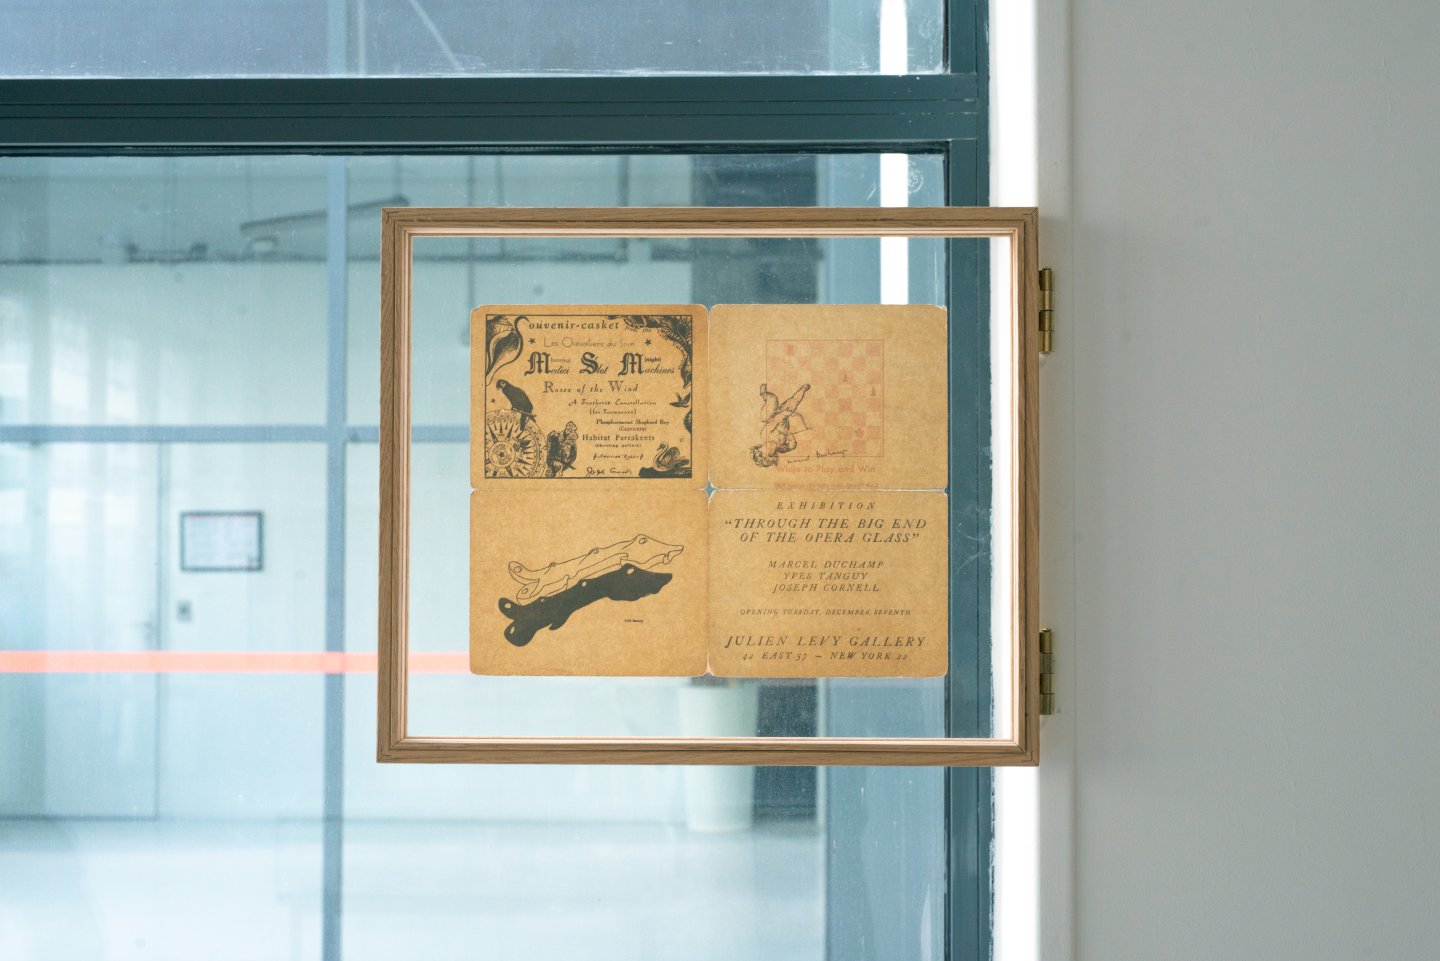 Souvenir-casket
Les Chevaliers du Soin
Medici Slot Machines
Roses of the Wind
A Feathered Constellation
(for Toumanova)
Phosphorescent Shepherd Boy
Habitat Parrakeets
(shooting gallery)
(American Rabbit)
Joseph Cornell
Marcel Duchamp
White to Play and Win
EXHIBITION
“THROUGH THE BIG END
OF THE OPERA GLASS”
MARCEL DUCHAMP
YVES TANGUY
JOSEPH CORNELL
OPENING TUESDAY, DECEMBER, SEVENTH
JULIEN LEVY GALLERY
42 EAST 57 — NEW YORK 22